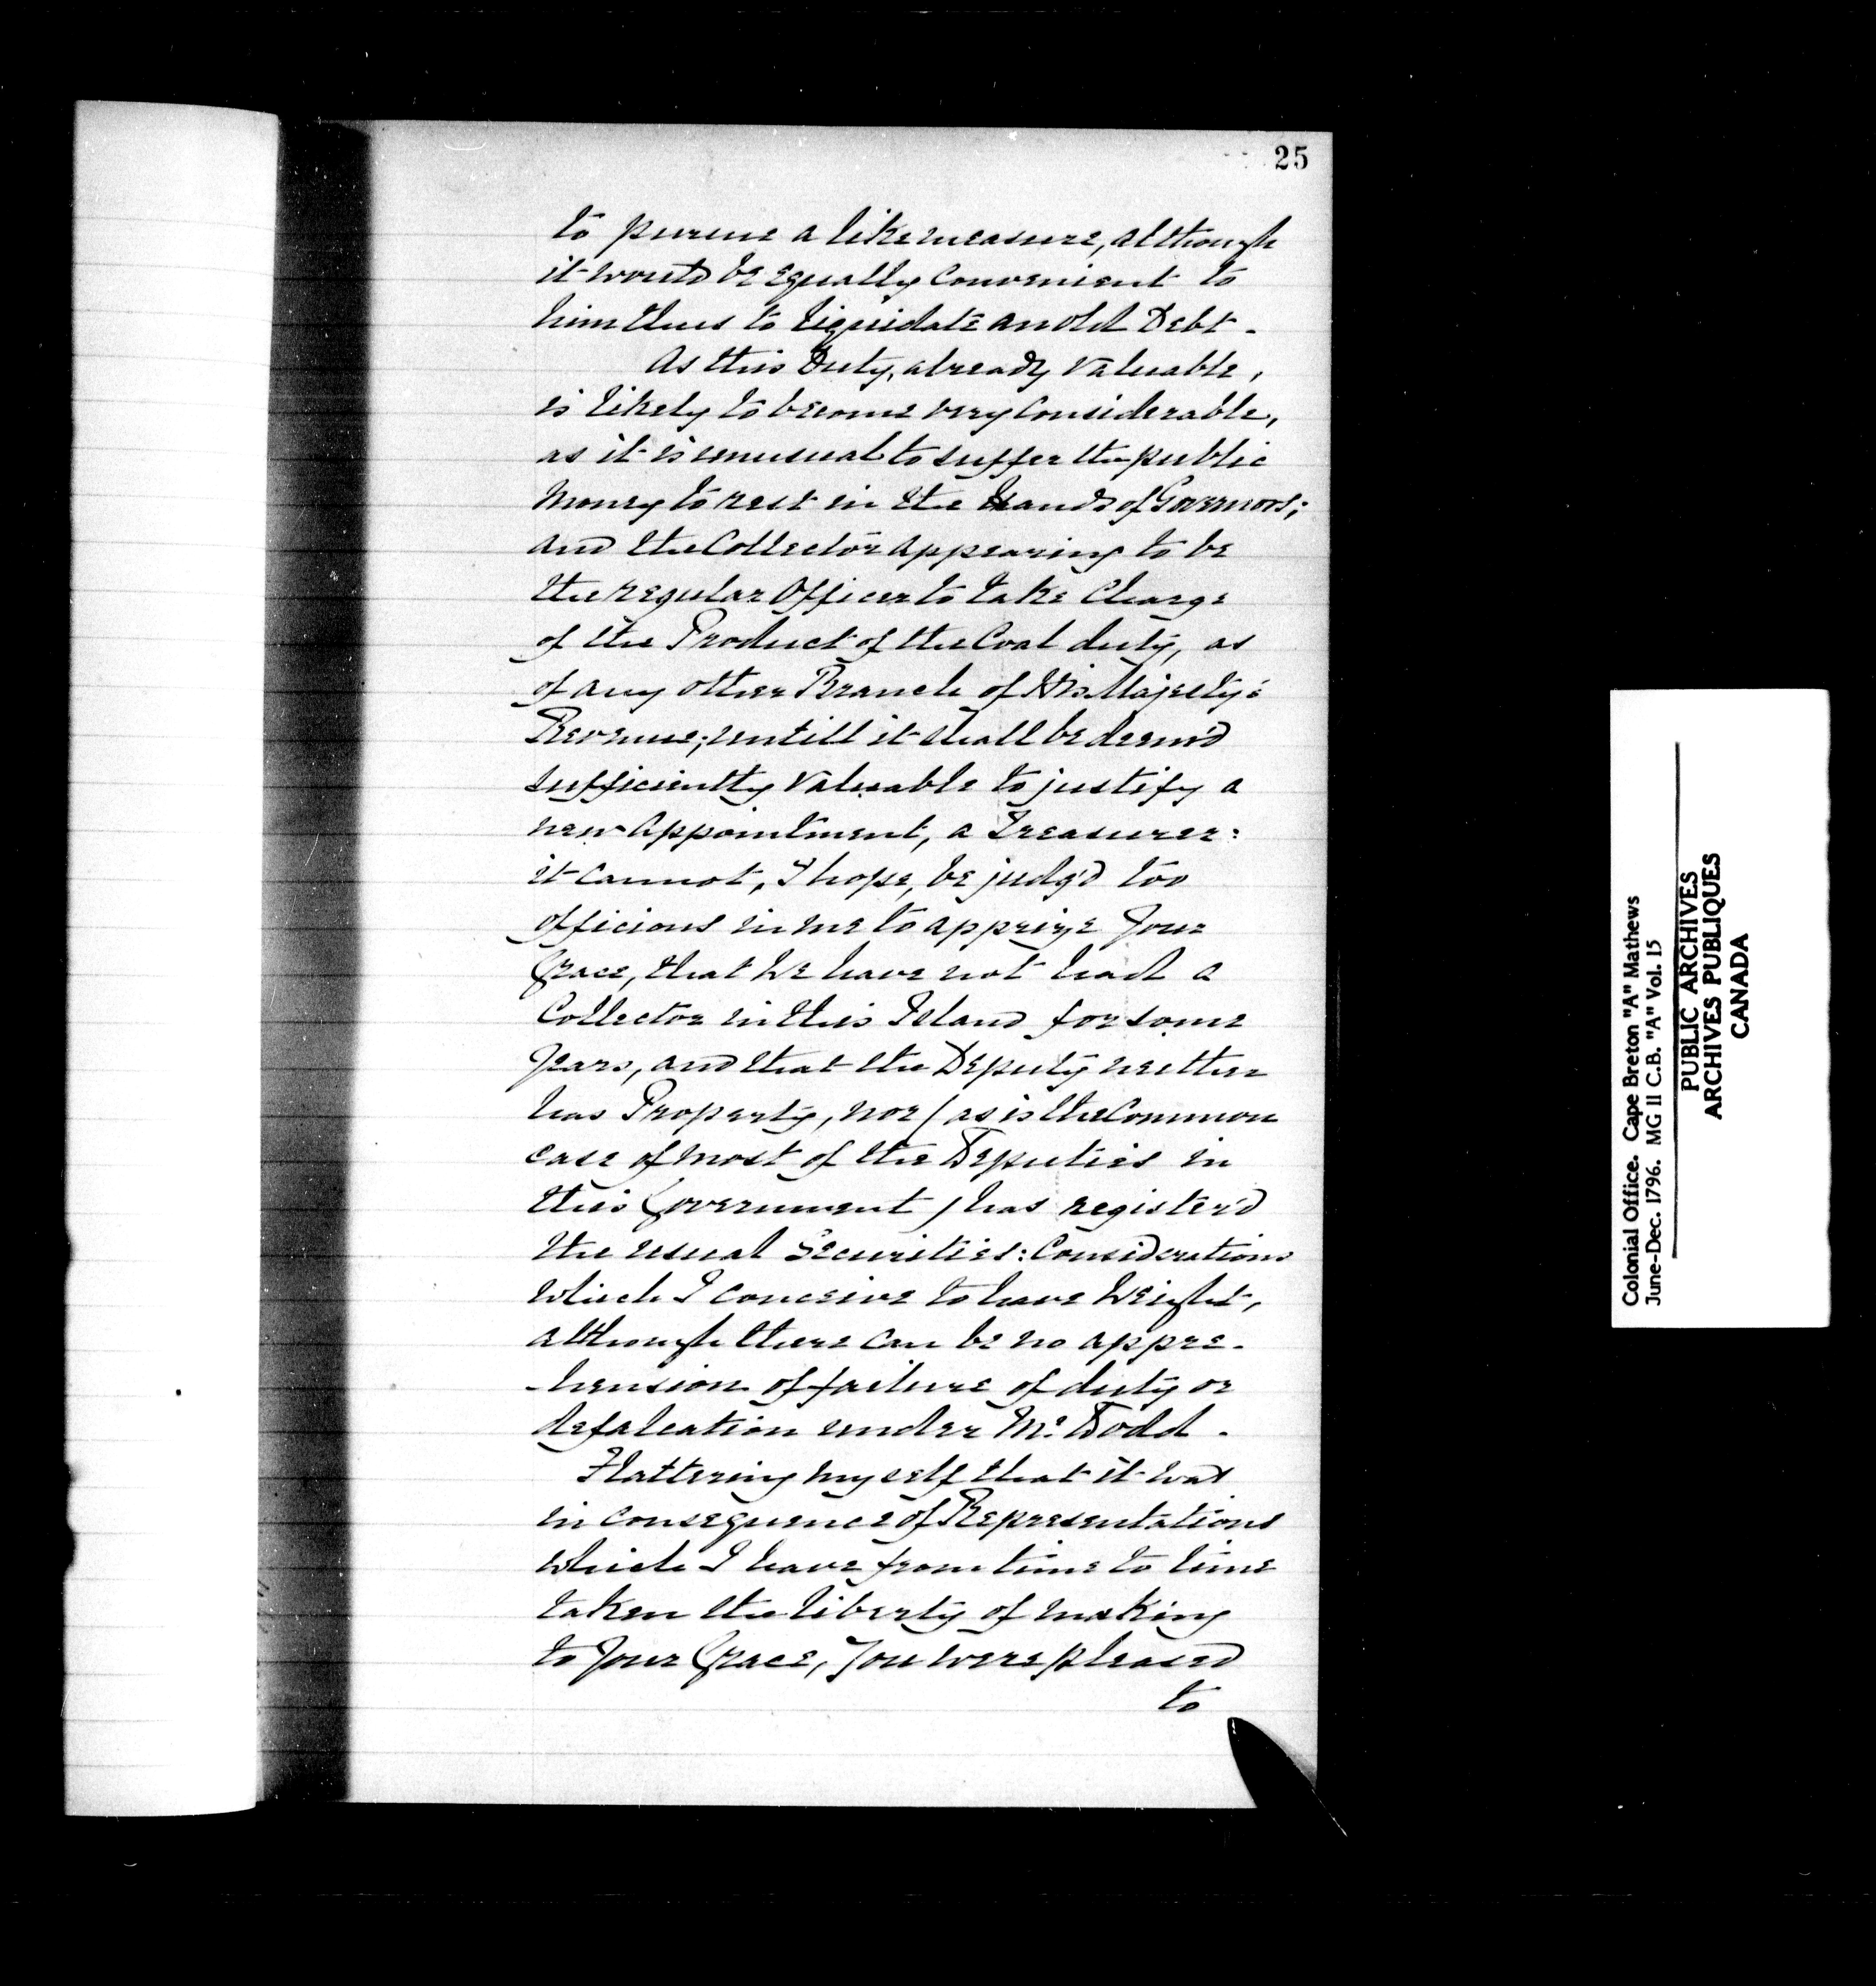 25
to pursue a like measure, although
it would be equally Convenient to
him thus to liquidate an old Debt.
As this Duty, already Valuable,
is likely to become very Considerable,
as it is unusual to suffer the public
Money to rest in the Hands of Governors;
and the Collector appearing to be
the regular Officer to take Charge
of the Product of the Coal duty, as
of any other Branch of His Majesty's
Revenue; untill it shall be deem'd
sufficiently Valuable to justify a
new Appointment, a Treasurer:
it cannot, I hope, be judg'd too
officious in me to apprize Your
Grace, that We have not had a
Collector in this Island for some
Years, and that the Deputy neither
has Property, nor (as is the Common
case of most of the Deputies in
this Government) has register'd
the usual Securities: Considerations
which I conceive to have Weight,
although there can be no appre-
-hension of failure of duty or
defalcation under Mr. Dodd.
Flattering myself that it was
in consequence of Representations
which I have from time to time
taken the liberty of making
to Your Grace, You were pleased
to
Colonial Office. Cape Breton "A" Mathews
June-Dec. 1796. MG 11 C.B. "A" Vol. 15
PUBLIC ARCHIVES
ARCHIVES PUBLIQUES
CANADA